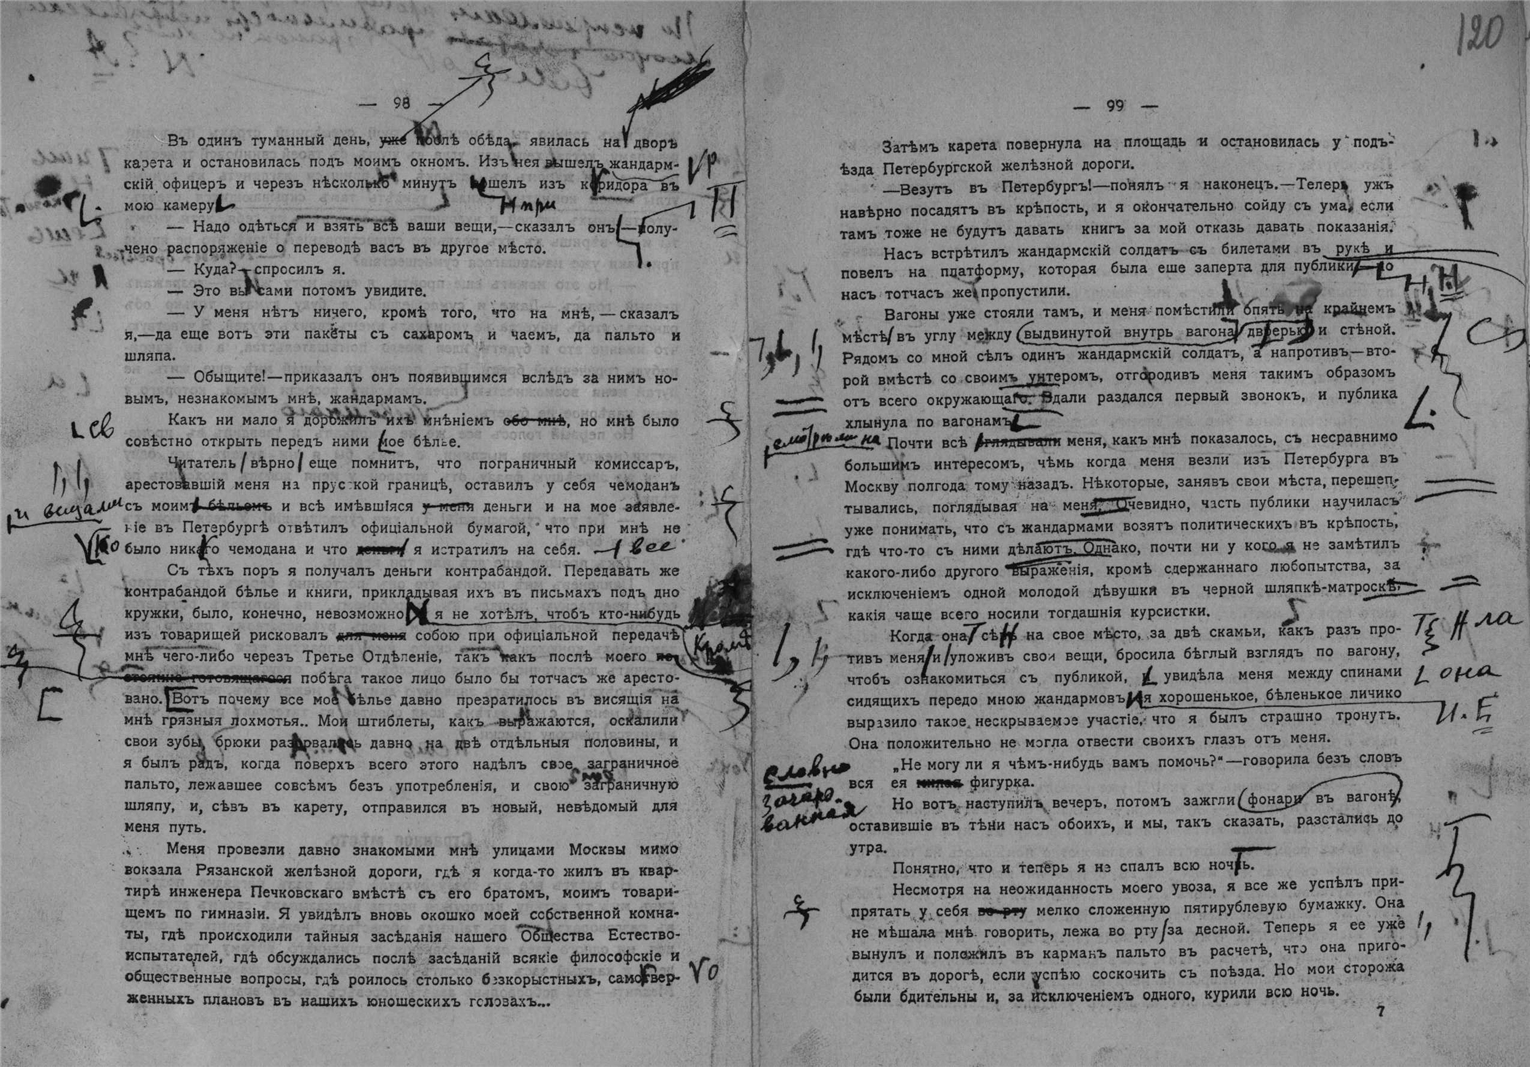 120
— 98 —
Въ одинъ туманный день, уже послѣ обѣда, явилась на дворъ
карета и остановилась подъ моимъ окномъ. Изъ нея вышелъ жандарм-
скій офицеръ и черезъ нѣсколько минутъ вошелъ изъ коридора въ
мою камеру
— Надо одѣться и взять всѣ ваши вещи,—сказалъ онъ—полу-
чено распоряженіе о переводѣ васъ въ другое мѣсто.
— Куда?—спросилъ я.
— Это вы сами потомъ увидите.
— У меня нѣтъ ничего, кромѣ того, что на мнѣ,—сказалъ
я,—да еще вотъ эти пакеты съ сахаромъ и чаемъ, да пальто и
шляпа.
— Обыщите!—приказалъ онъ появившимся вслѣдъ за нимъ но-
вымъ, незнакомымъ мнѣ, жандармамъ.
Какъ ни мало я дорожилъ ихъ мнѣніемъ обо мнѣ, но мнѣ было
совѣстно открыть передъ ними мое бѣлье.
Читатель вѣрно еще помнитъ, что пограничный комиссаръ,
арестовавшій меня на прусской границѣ, оставилъ у себя чемоданъ
съ моимъ бѣльемъ и всѣ имѣвшіяся у меня деньги и на мое заявле-
и вещами
ніе въ Петербургѣ отвѣтилъ офиціальной бумагой, что при мнѣ не
было никаго чемодана и что деньги я истратилъ на себя.
все
Съ тѣхъ поръ я получалъ деньги контрабандой. Передавать же
контрабандой бѣлье и книги, прикладывая ихъ въ письмахъ подъ дно
кружки, было, конечно, невозможно я не хотѣлъ, чтобъ кто-нибудь
изъ товарищей рисковалъ для меня собою при офиціальной передачѣ
Кромѣ
мнѣ чего-либо черезъ Третье Отдѣленіе, такъ какъ послѣ моего по-
стоянно готовящагося побѣга такое лицо было бы тотчасъ же аресто-
вано. Вотъ почему все мое бѣлье давно превратилось въ висящія на
мнѣ грязныя лохмотья.. Мои штиблеты, какъ выражаются, оскалили
свои зубы, брюки разорвались давно на двѣ отдѣльныя половины, и
я былъ радъ, когда поверхъ всего этого надѣлъ свое заграничное
пальто, лежавшее совсѣмъ безъ употребленія, и свою заграничную
шляпу, и, сѣвъ въ карету, отправился въ новый, невѣдомый для
меня путь.
Меня провезли давно знакомыми мнѣ улицами Москвы мимо
вокзала Рязанской желѣзной дороги, гдѣ я когда-то жилъ въ квар-
тирѣ инженера Печковскаго вмѣстѣ съ его братомъ, моимъ товари-
щемъ по гимназіи. Я увидѣлъ вновь окошко моей собственной комна-
ты, гдѣ происходили тайныя засѣданія нашего Общества Естество-
испытателей, гдѣ обсуждались послѣ засѣданій всякіе философскіе и
общественные вопросы, гдѣ роилось столько безкорыстныхъ, самотвер-
женныхъ плановъ въ нашихъ юношескихъ головахъ...
— 99 —
Затѣмъ карета повернула на площадь и остановилась у подъ-
ѣзда Петербургской желѣзной дороги.
—Везутъ въ Петербургъ!—понялъ я наконецъ.—Теперь ужъ
навѣрно посадятъ въ крѣпость, и я окончательно сойду съ ума, если
тамъ тоже не будутъ давать книгъ за мой отказъ давать показанія.
Насъ встрѣтилъ жандармскій солдатъ съ билетами въ рукѣ и
повелъ на платформу, которая была еще заперта для публики, но
насъ тотчасъ же пропустили.
Вагоны уже стояли тамъ, и меня помѣстили опять на крайнемъ
мѣстѣ въ углу между выдвинутой внутрь вагона дверью и стѣной.
Рядомъ со мной сѣлъ одинъ жандармскій солдатъ, а напротивъ—вто-
рой вмѣстѣ со своимъ унтеромъ, отгородивъ меня такимъ образомъ
отъ всего окружающаго. Вдали раздался первый звонокъ, и публика
хлынула по вагонамъ
смотрѣли на
Почти всѣ оглядывали меня, какъ мнѣ показалось, съ несравнимо
большимъ интересомъ, чѣмъ когда меня везли изъ Петербурга въ
Москву полгода тому назадъ. Нѣкоторые, занявъ свои мѣста, перешеп-
тывались, поглядывая на меня. Очевидно, часть публики научилась
уже понимать, что съ жандармами возятъ политическихъ въ крѣпость,
гдѣ что-то съ ними дѣлаютъ. Однако, почти ни у кого я не замѣтилъ
какого-либо другого выраженія, кромѣ сдержаннаго любопытства, за
исключеніемъ одной молодой дѣвушки въ черной шляпкѣ-матроскѣ,
какія чаще всего носили тогдашнія курсистки.
Когда она сѣла на свое мѣсто, за двѣ скамьи, какъ разъ про-
тивъ меня и уложивъ свои вещи, бросила бѣглый взглядъ по вагону,
чтобъ ознакомиться съ публикой, увидѣла меня между спинами
она
сидящихъ передо мною жандармовъ, ея хорошенькое, бѣленькое личико
выразило такое нескрываемое участіе, что я былъ страшно тронутъ.
Она положительно не могла отвести своихъ глазъ отъ меня.
„Не могу ли я чѣмъ-нибудь вамъ помочь?“—говорила безъ словъ
словно
зачаро-
ванная
вся ея милая фигурка.
Но вотъ наступилъ вечеръ, потомъ зажгли фонари въ вагонѣ,
оставившіе въ тѣни насъ обоихъ, и мы, такъ сказать, разстались до
утра.
Понятно, что и теперь я не спалъ всю ночь.
Несмотря на неожиданность моего увоза, я все же успѣлъ при-
прятать у себя во рту мелко сложенную пятирублевую бумажку. Она
не мѣшала мнѣ говорить, лежа во рту за десной. Теперь я ее уже
вынулъ и положилъ въ карманъ пальто въ расчетѣ, что она приго-
дится въ дорогѣ, если успѣю соскочить съ поѣзда. Но мои сторожа
были бдительны и, за исключеніемъ одного, курили всю ночь.
7